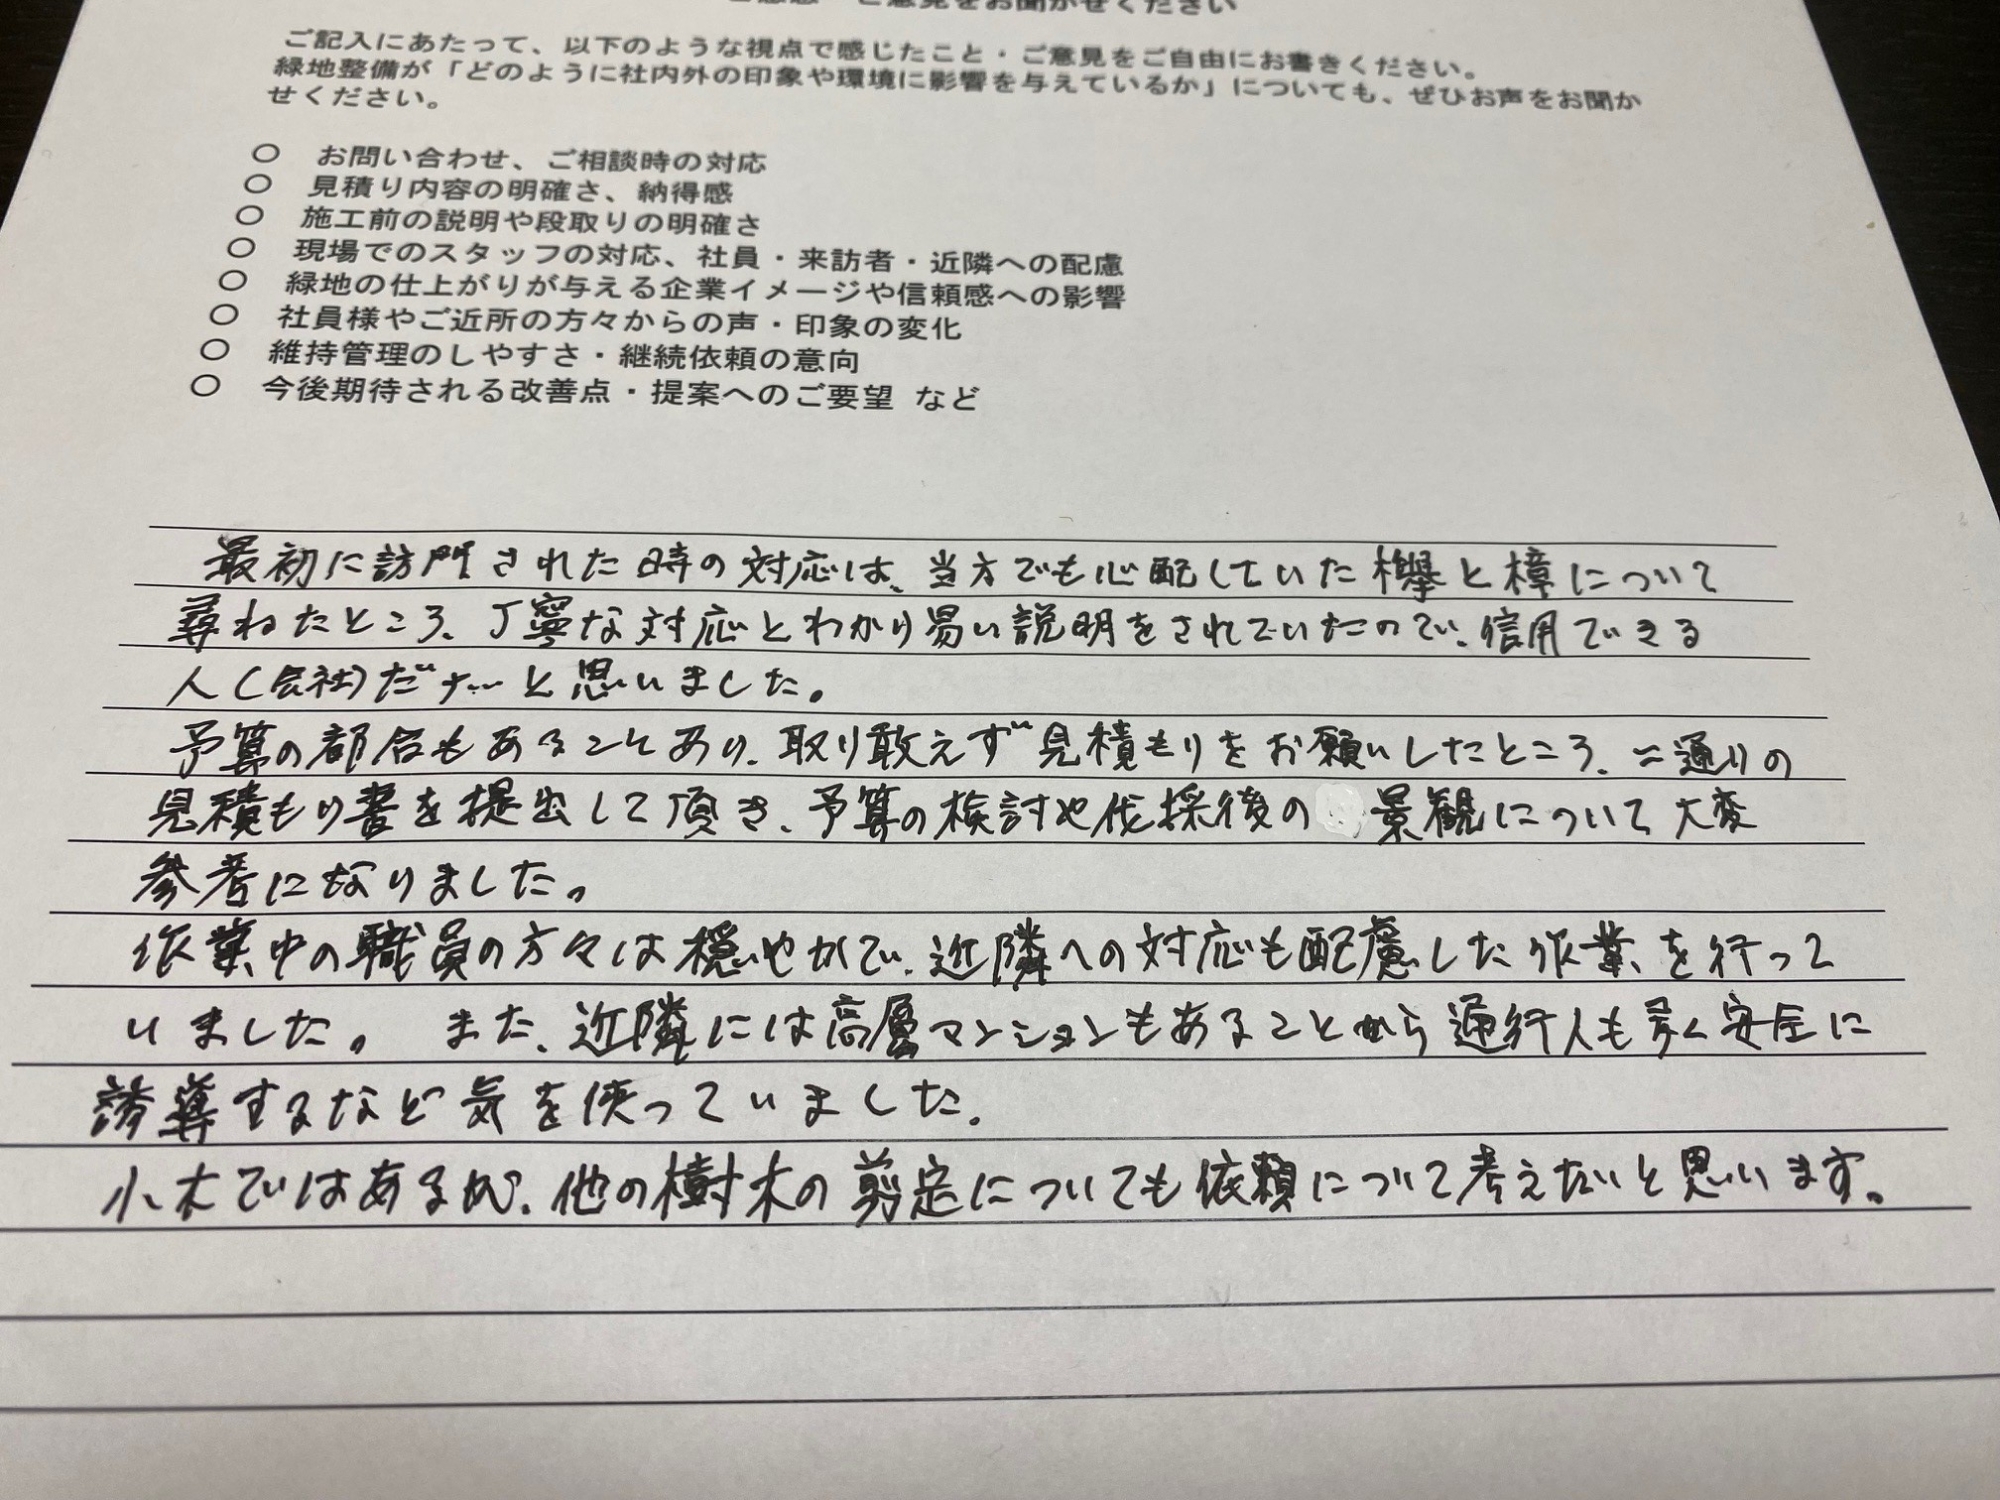 ご感想・ご意見をお聞かせください
ご記入にあたって、以下のような視点で感じたこと・ご意見をご自由にお書きください。
緑地整備が「どのように社内外の印象や環境に影響を与えているか」についても、ぜひお声をお聞か
せください。
○ お問い合わせ、ご相談時の対応
○ 見積り内容の明確さ、納得感
○ 施工前の説明や段取りの明確さ
○ 現場でのスタッフの対応、社員・来訪者・近隣への配慮
○ 緑地の仕上がりが与える企業イメージや信頼感への影響
○ 社員様やご近所の方々からの声・印象の変化
○ 維持管理のしやすさ・継続依頼の意向
○ 今後期待される改善点・提案へのご要望 など
最初に訪問された時の対応は、当方でも心配していた欅と樟について
尋ねたところ、丁寧な対応とわかり易い説明をされていたので、信用できる
人(会社)だナ…と思いました。
予算の都合もあることもあり、取り敢えず見積もりをお願いしたところ、二通りの
見積もり書を提出して頂き、予算の検討や伐採後の景観について大変
参考になりました。
作業中の職員の方々は穏やかで、近隣への対応も配慮した作業を行って
いました。 また、近隣には高層マンションもあることから通行人も多く安全に
誘導するなど気を使っていました。
小木ではあるが、他の樹木の剪定についても依頼について考えたいと思います。